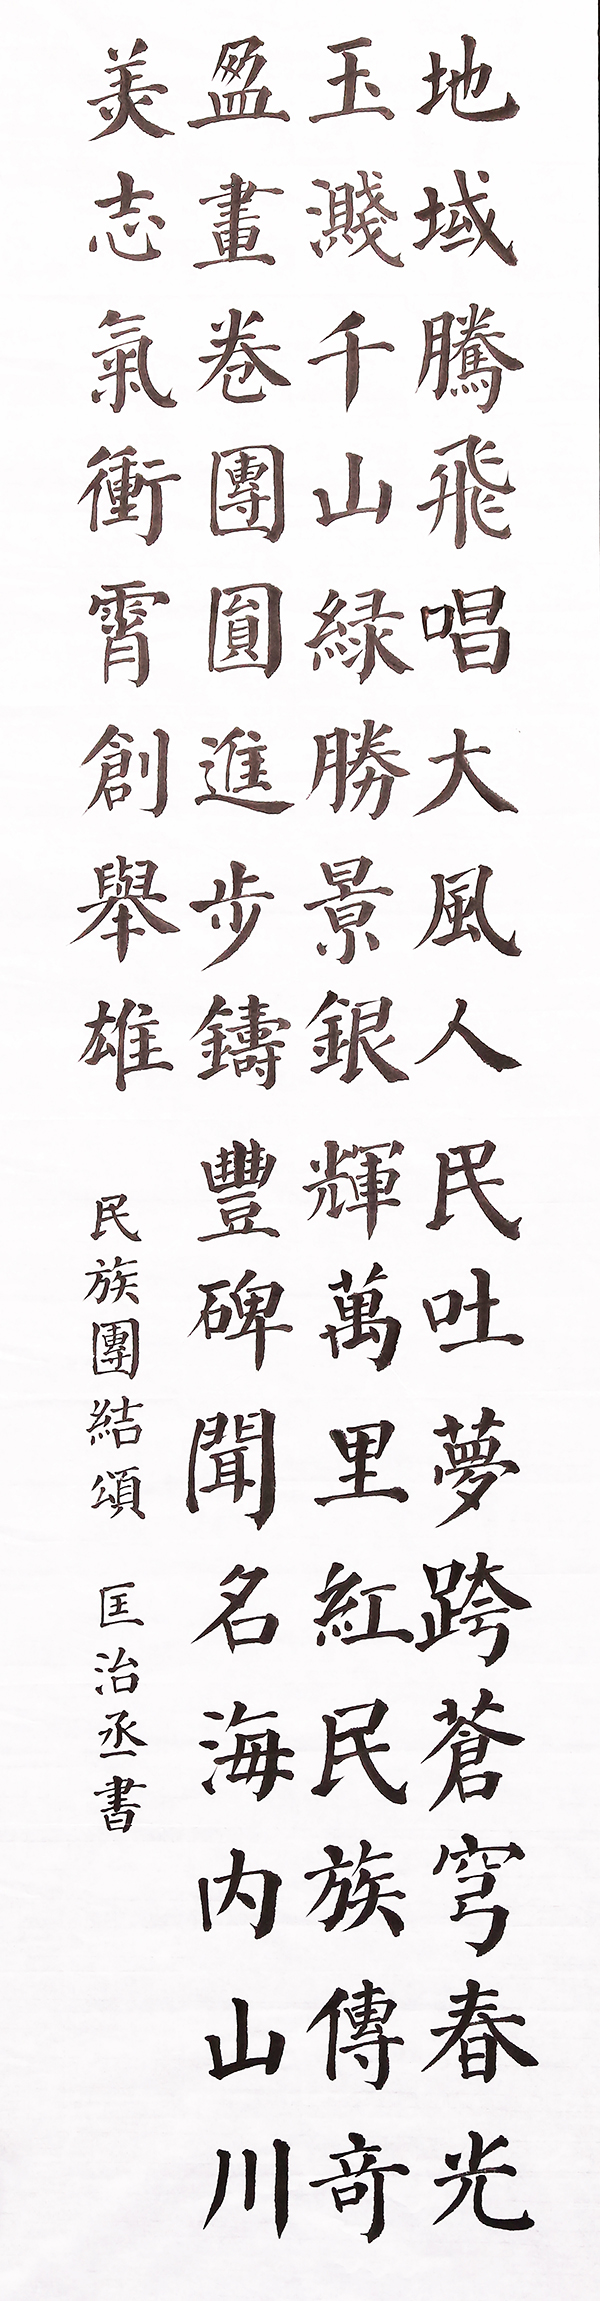 地域騰飛唱大風人民吐夢跨蒼穹春光
玉濺千山緑勝景銀輝萬里紅民族傳竒
盈畫卷團圓進步鑄豐碑聞名海内山川
美志氣衝霄創舉雄
民族團結頌 匡治丞書